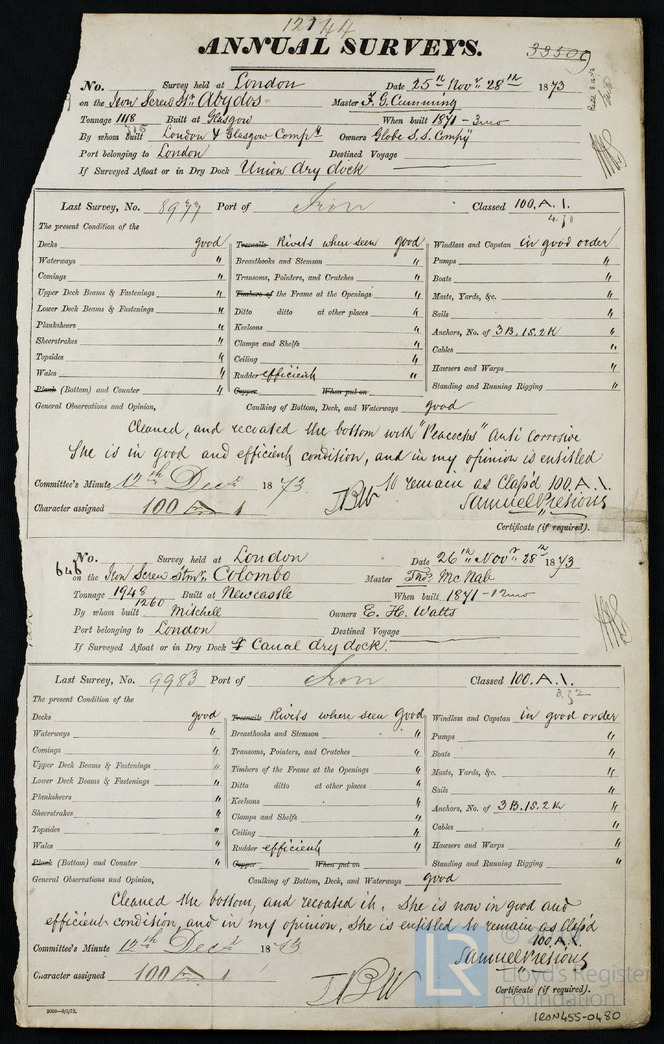 12744
ANNUAL SURVEYS.
33509
No. Survey held at London Date 25th Novr 28th 1873
on the Iron Screw Str. Abydos Master F. G. Cumming
Tonnage 1118 Built at Glasgow When built 1871 - 3mo
By whom Built London & Glasgow Compy Owners Globe S.S. Compy
Port belonging to London Destined Voyage
If Surveyed Afloat or in Dry Dock Union dry dock
Last Survey, No. 8977 Port of Iron Classed 100.A.1.
The present Condition of the
Decks good Treenails Rivets where seen good Windlass and Capstan in good order
Waterways " Breasthooks and Stemson " Pumps "
Comings " Transoms, Pointers, and Crutches " Boats "
Upper Deck Beams & Fastenings " Timbers of the Frame at the Openings " Masts, Yards, &c. "
Lower Deck Beams & Fastenings " Ditto ditto at other places " Sails "
Planksheers " Keelsons " Anchors, No. of 3B.1S.2K "
Sheerstrakes " Clamps and Shelfs " Cables "
Topsides " Ceiling " Hawsers and Warps "
Wales " Rudder efficient " Standing and Running Rigging "
Plank (Bottom) and Counter " Copper When put on
General Observations and Opinion, Caulking of Bottom, Deck, and Waterways good
Cleaned, and recoated the bottom with "Peacocks" Anti Corrosive
She is in good and efficient condition, and in my opinion is entitled
to remain as Class'd 100.A.1.
Committee's Minute 12th Decr 1873
Character assigned 100 A 1
JBW
Samuel Presious
Certificate (if required).
No. Survey held at London Date 26th Novr 28th 1873
646 on the Iron Screw Stmr. Colombo Master Thos. McNab
Tonnage 1948 Built at Newcastle When built 1871 - 12mo
1260
By whom built Mitchell Owners E. H. Watts
Port belonging to London Destined Voyage
If Surveyed Afloat or in Dry Dock Canal dry dock.
Last Survey, No. 9983 Port of Iron Classed 100.A.1.
The present Condition of the
Decks good Treenails Rivets where seen Good Windlass and Capstan in good order
Waterways " Breasthooks and Stemson " Pumps "
Comings " Transoms, Pointers, and Crutches " Boats "
Upper Deck Beams & Fastenings " Timbers of the Frame at the Openings " Masts, Yards, &c. "
Lower Deck Beams & Fastenings " Ditto ditto at other places " Sails "
Planksheers " Keelsons " Anchors, No. of 3B.1S.2K "
Sheerstrakes " Clamps and Shelfs " Cables "
Topsides " Ceiling " Hawsers and Warps "
Wales " Rudder efficient " Standing and Running Rigging "
Plank (Bottom) and Counter " Copper When put on
General Observations and Opinion, Caulking of Bottom, Deck, and Waterways good
Cleaned the bottom, and recoated it. She is now in good and
efficient condition, and in my opinion, she is entitled to remain as Class'd
100.A.1.
Committee's Minute 12th Decr 1873
Samuel Presious
Character assigned 100 A 1
JBW
Certificate (if required).
LR
Lloyd's Register
Foundation
IRON455-0480